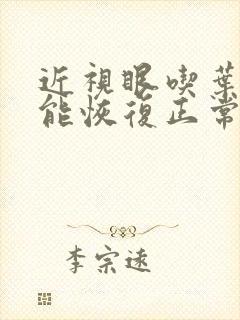 近視眼喫葉
能恢復正常
李宗遠